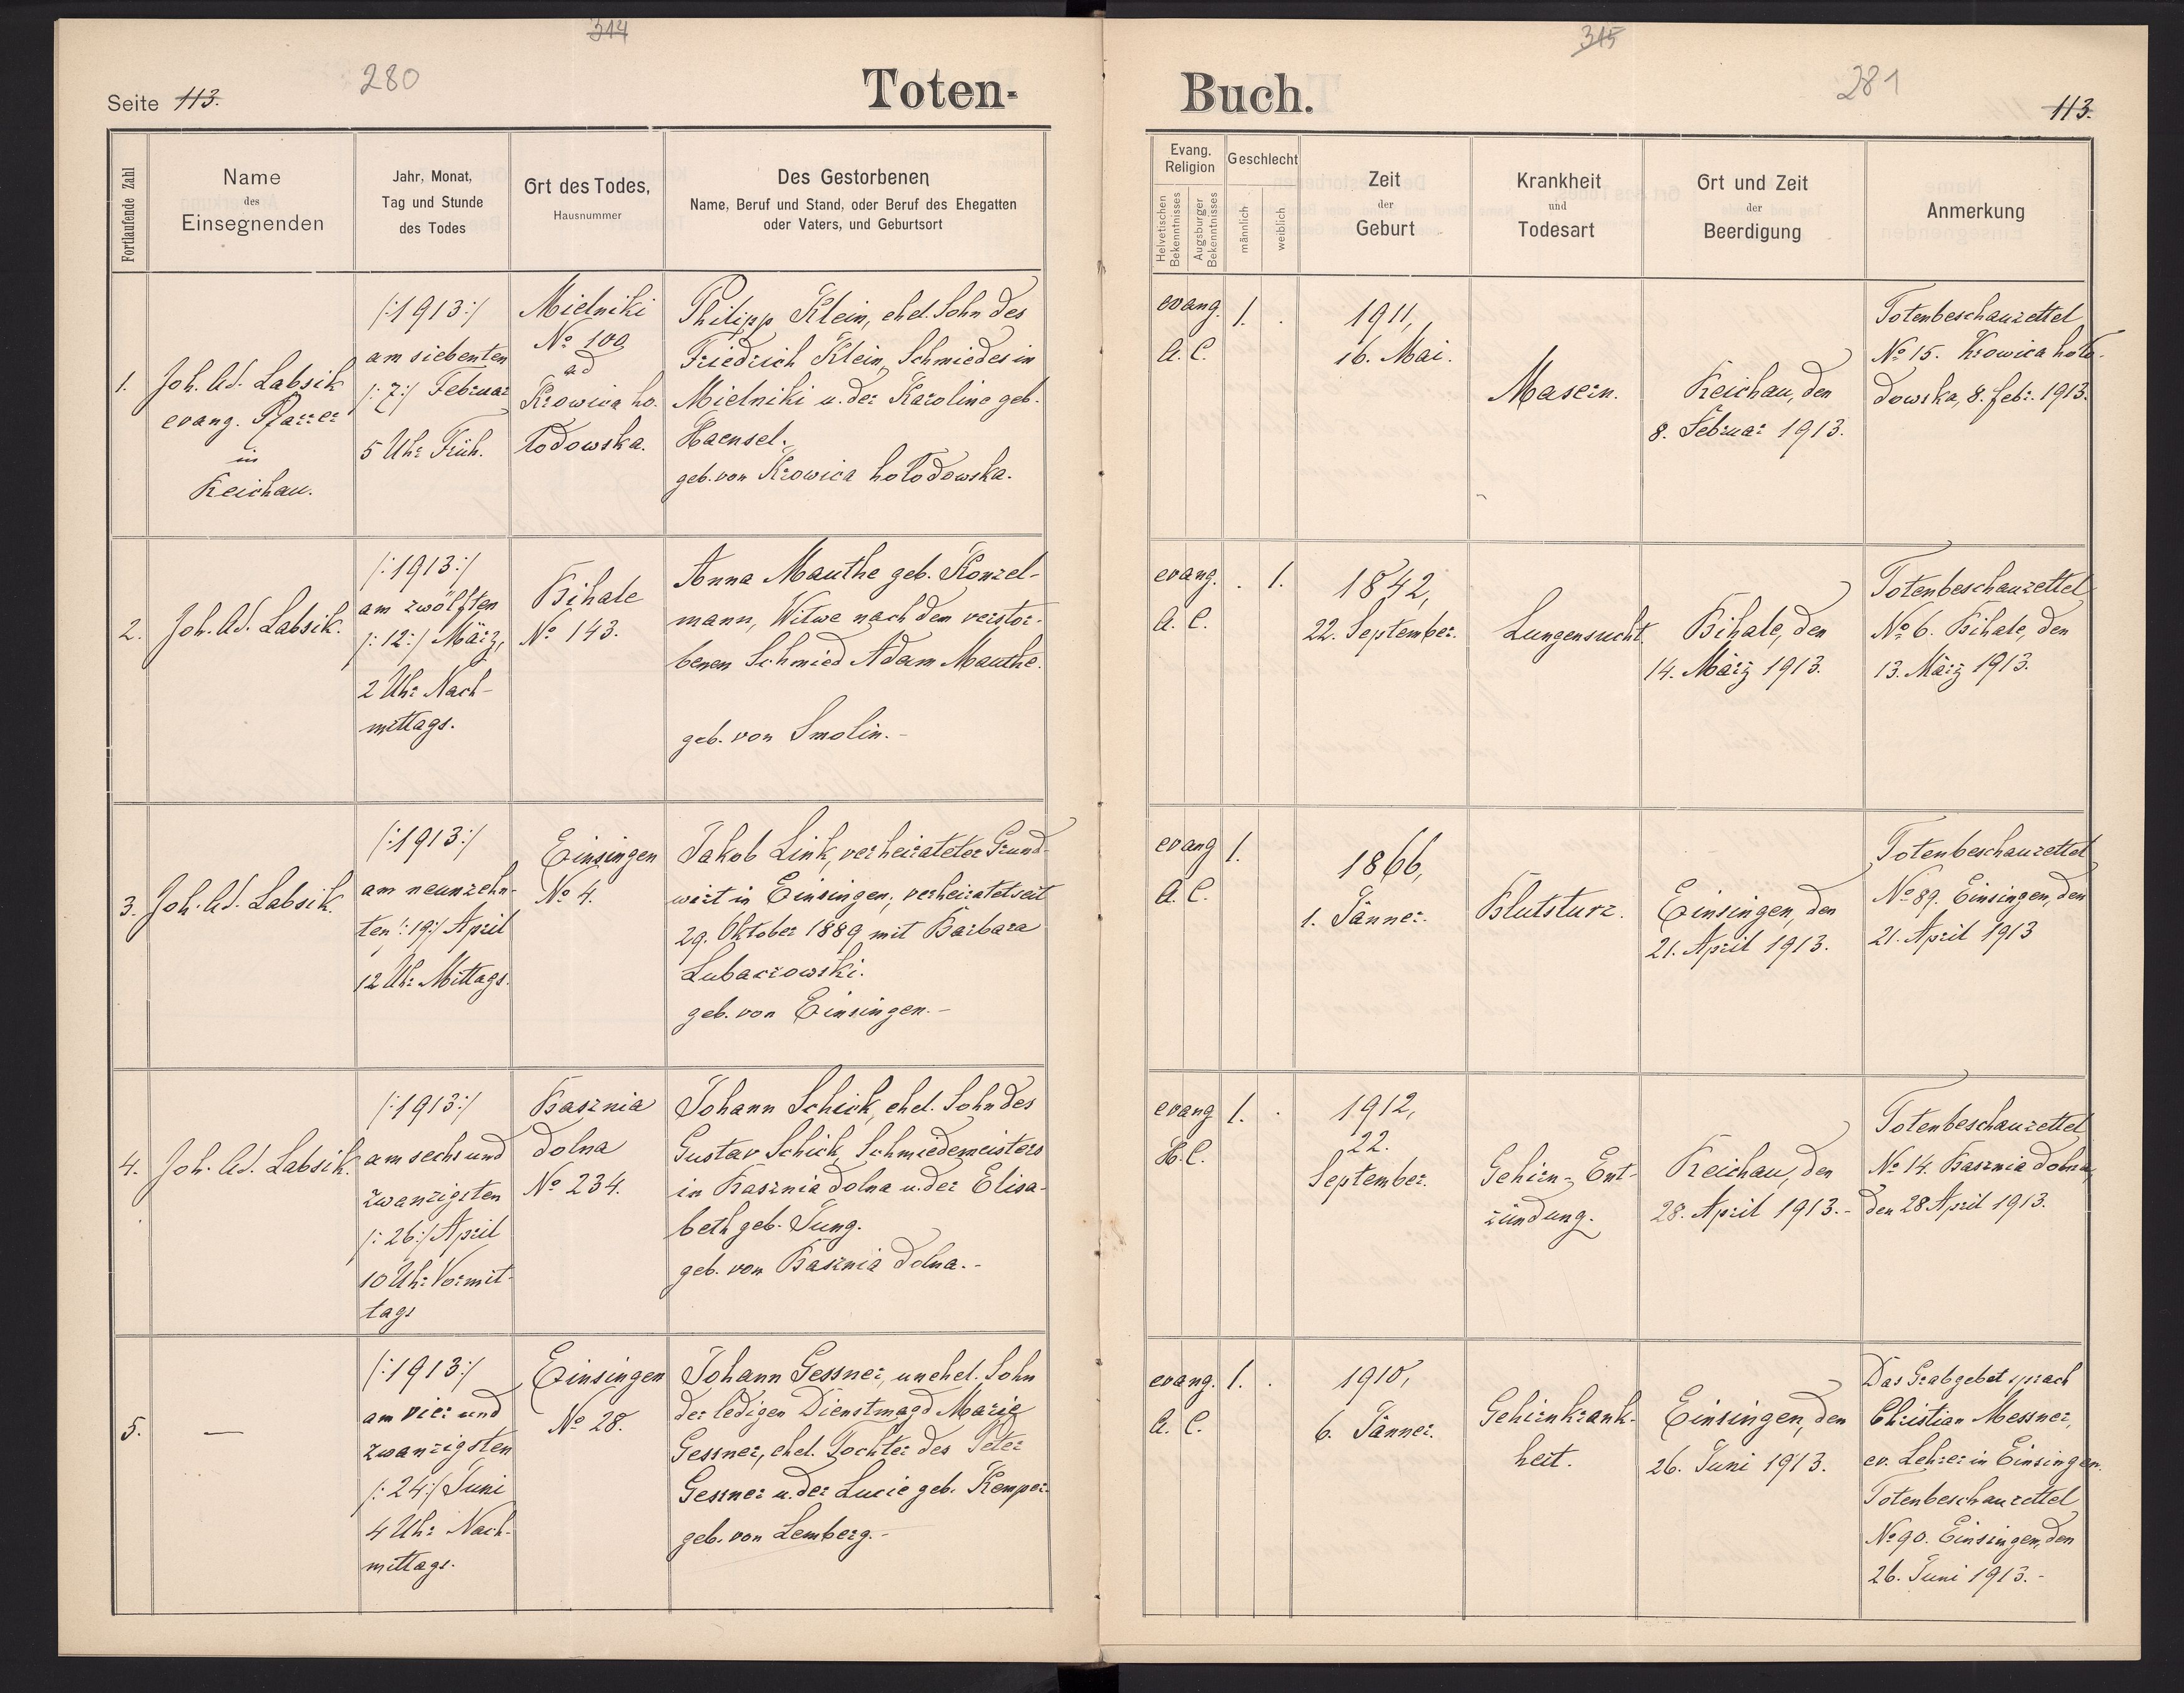 314
280
Seite 113.
Toten-
Fortlaufende Zahl
Name
des
Einsegnenden
Jahr, Monat,
Tag und Stunde
des Todes
Ort des Todes,
Hausnummer
Des Gestorbenen
Name, Beruf und Stand, oder Beruf des Ehegatten
oder Vaters, und Geburtsort
1.
Joh. Ad. Labsik
evang. Pfarrer
in
Reichau.
/:1913:/
am siebenten
/:7:/ Februar
5 Uhr Früh.
Mielniki
No 100
ad
Krowica ho-
łodowska.
Philipp Klein, ehel. Sohn des
Friedrich Klein, Schmiedes in
Mielniki u. der Karoline geb.
Haensel.
geb. von Krowica hołodowska.
2.
Joh. Ad. Labsik.
/:1913:/
am zwölften
/:12:/ März,
2 Uhr Nach-
mittags.
Bihale
No 143.
Anna Mauthe geb. Konzel-
mann, Witwe nach dem verstor-
benen Schmied Adam Mauthe.
geb. von Smolin.-
3.
Joh. Ad. Labsik.
/:1913:/
am neunzehn-
ten /:19:/ April
12 Uhr Mittags.
Einsingen
No 4.
Jakob Link, verheirateter Grund-
wirt in Einsingen, verheiratet seit
29. Oktober 1889 mit Barbara
Lubaczowski.
geb. von Einsingen.-
4.
Joh. Ad. Labsik.
/:1913:/
am sechs und
zwanzigsten
/:26:/ April
10 Uhr Vormit-
tags
Basznia
dolna
No 234.
Johann Schick, ehel. Sohn des
Gustav Schick, Schmiedemeisters
in Basznia dolna u. der Elisa-
beth geb. Jung.
geb. von Basznia dolna.-
5.
—
/:1913:/
am vier und
zwanzigsten
/:24:/ Juni
4 Uhr Nach-
mittags.
Einsingen
No 28.
Johann Gessner, unehel. Sohn
der ledigen Dienstmagd Marie
Gessner, ehel. Tochter des Peter
Gessner u. der Lucie geb. Kemper.
geb. von Lemberg.-
315
281
Buch.
113.
Evang.
Religion
Helvetischen
Bekenntnisses
Augsburger
Bekenntnisses
Geschlecht
männlich
weiblich
Zeit
der
Geburt
Krankheit
und
Todesart
Ort und Zeit
der
Beerdigung
Anmerkung
evang.
A. C.
1.
.
1911,
16. Mai.
Masern.
Reichau, den
8. Februar 1913.
Totenbeschauzettel
No 15. Krowica hoło-
dowska, 8. Febr. 1913.
evang.
A. C.
.
1.
1842,
22. September.
Lungensucht.
Bihale, den
14. März 1913.
Totenbeschauzettel
No 6. Bihale, den
13. März 1913.
evang
A. C.
1.
1866,
1. Jänner.
Blutsturz.
Einsingen, den
21. April 1913.
Totenbeschauzettel
No 89. Einsingen, den
21. April 1913
evang
H. C.
1.
.
1912,
22.
September.
Gehirn- Ent-
zündung.
Reichau, den
28. April 1913.-
Totenbeschauzettel
No 14. Basznia dolna,
den 28 April 1913.
evang.
A. C.
1.
.
1910,
6. Jänner.
Gehirnkrank-
heit.
Einsingen, den
26. Juni 1913.
Das Grabgebet sprach
Christian Messner,
ev. Lehrer in Einsingen.
Totenbeschauzettel
No 90. Einsingen, den
26. Juni 1913.-